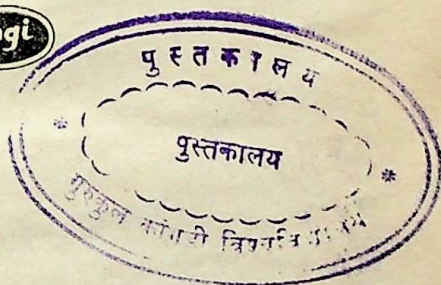 gi
पुस्तकालय
पुस्तकालय
गुरुकुल कांगड़ी विश्वविद्यालय